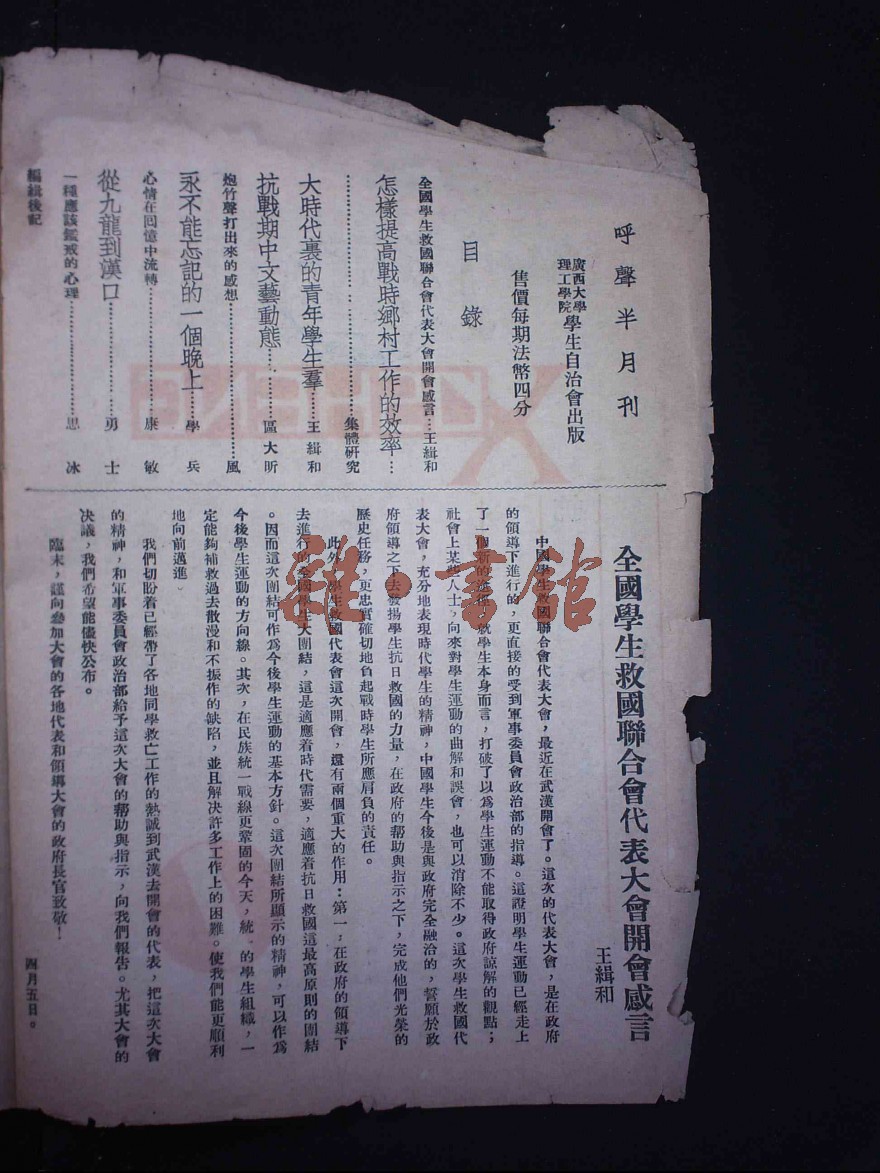 呼聲半月刊
廣西大學
理工學院
學生自治會出版
售價每期法幣四分
目錄
全國學生救國聯合會代表大會開會感言…王緝和
怎樣提高戰時鄉村工作的效率…
……………………集體研究
大時代裏的青年學生羣……王緝和
抗戰期中文藝動態………區大昕
炮竹聲打出來的感想……………………風
永不能忘記的一個晚上……學兵
心情在囘憶中流轉……………康敏
從九龍到漢口……………勇士
一種應該鑑戒的心理……………………思冰
編緝後記
全國學生救國聯合會代表大會開會感言
王緝和
中國學生救國聯合會代表大會，最近在武漢開會了。這次的代表大會，是在政府
的領導下進行的，更直接的受到軍事委員會政治部的指導。這證明學生運動已經走上
了一個新的途徑。就學生本身而言，打破了以爲學生運動不能取得政府諒解的觀點；
社會上某些人士，向來對學生運動的曲解和誤會，也可以消除不少。這次學生救國代
表大會，充分地表現時代學生的精神，中國學生今後是與政府完全融洽的，誓願於政
府領導之下去發揚學生抗日救國的力量，在政府的帮助與指示之下，完成他們光榮的
歷史任務，更忠實確切地負起戰時學生所應肩負的責任。
此外，學生救國代表會這次開會，還有兩個重大的作用：第一，在政府的領導下
去進行的全國學生大團結，這是適應着時代需要，適應着抗日救國這最高原則的團結
。因而這次團結可作爲今後學生運動的基本方針。這次團結所顯示的精神，可以作爲
今後學生運動的方向線。其次，在民族統一戰線更鞏固的今天，統一的學生組織，一
定能夠補救過去散漫和不振作的缺陷，並且解决許多工作上的困難。使我們能更順利
地向前邁進。
我們切盼着已經帶了各地同學救亡工作的熱誠到武漢去開會的代表，把這次大會
的精神，和軍事委員會政治部給予這次大會的帮助與指示，向我們報告。尤其大會的
决議，我們希望能儘快公布。
臨末，謹向參加大會的各地代表和領導大會的政府長官致敬！
四月五日。
雜·書館